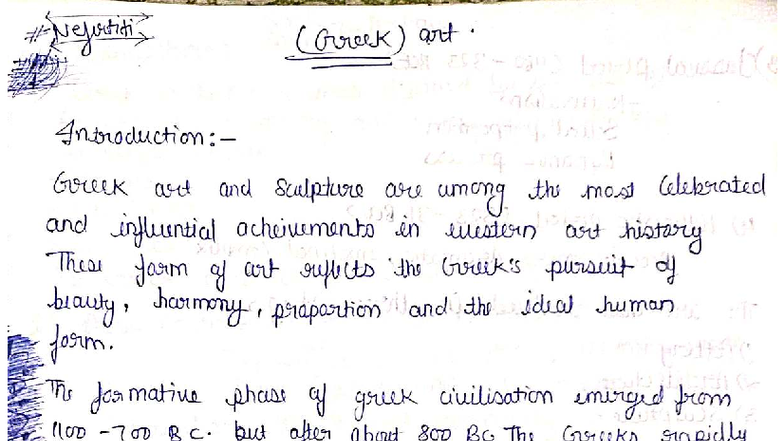 # Nefirtiti
(Greek) art.
Introduction:-
Greek art and Sculpture are among the most Celebrated
and influential acheivements in western art history
These form of art reflects the Greek's pursuit of
beauty, harmony, praportion and the ideal human
form.
The formative phase of greek civilisation emerged from
1100 - 700 B C. but after about 800 BC The Greeks rapidly